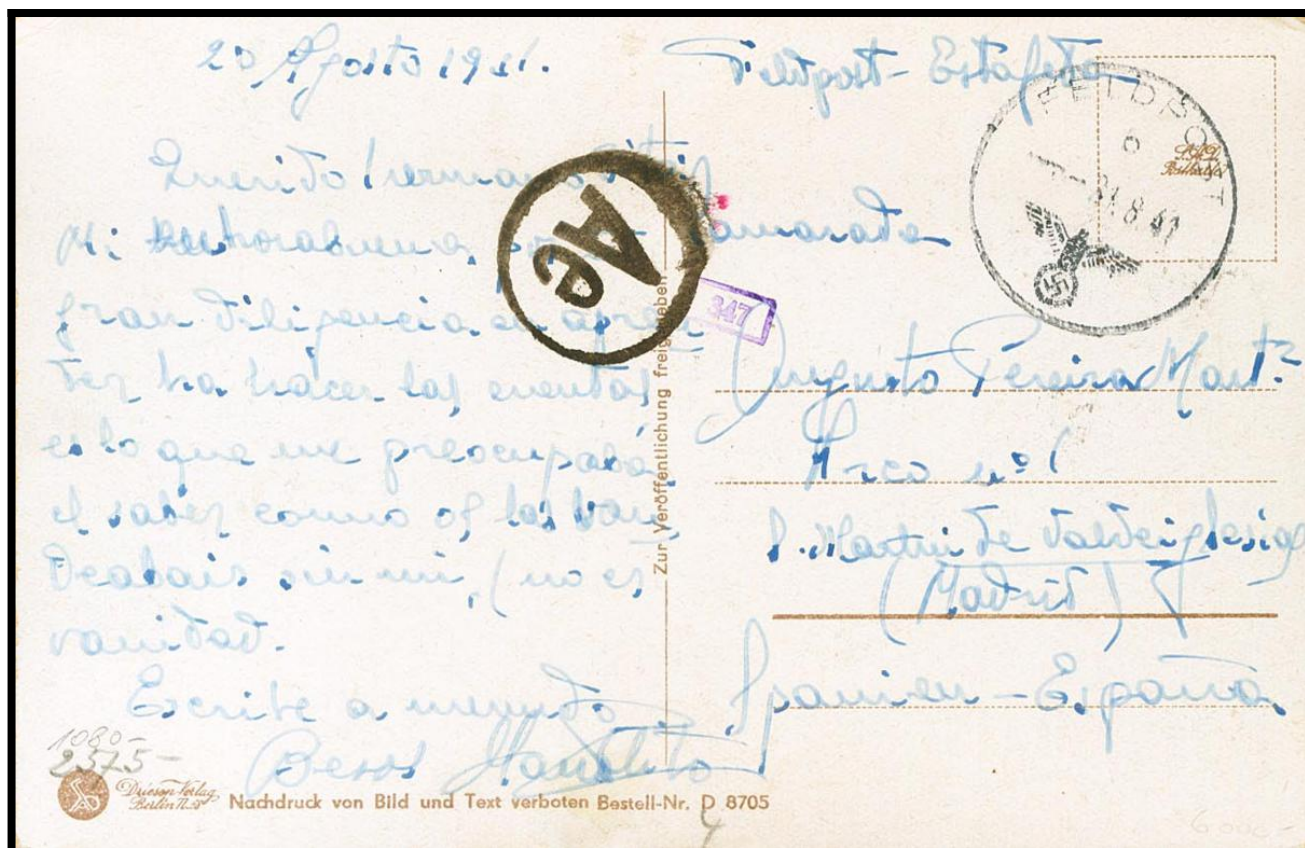 20 Agosto 1941.
Querido hermano
Mi enhorabuena camarada
gran diligencia en apren
der ha hacer las cuentas
es lo que me preocupaba,
el saber como os las
sin mi, (no es
vanidad.
Escribe a menudo
Besos Manolito
1080-
2575-
Driesen-Verlag
Berlin
Nachdruck von Bild und Text verboten Bestell-Nr. D 8705
Zur Veröffentlichung freigegeben
Ae
347
Feldpost - Estafeta
FELDPOST
.8.41
Augusto Pereira Mart.
Arco nº 1
S. Martin de Valdeiglesias
(Madrid)
Spanien - España
6000-